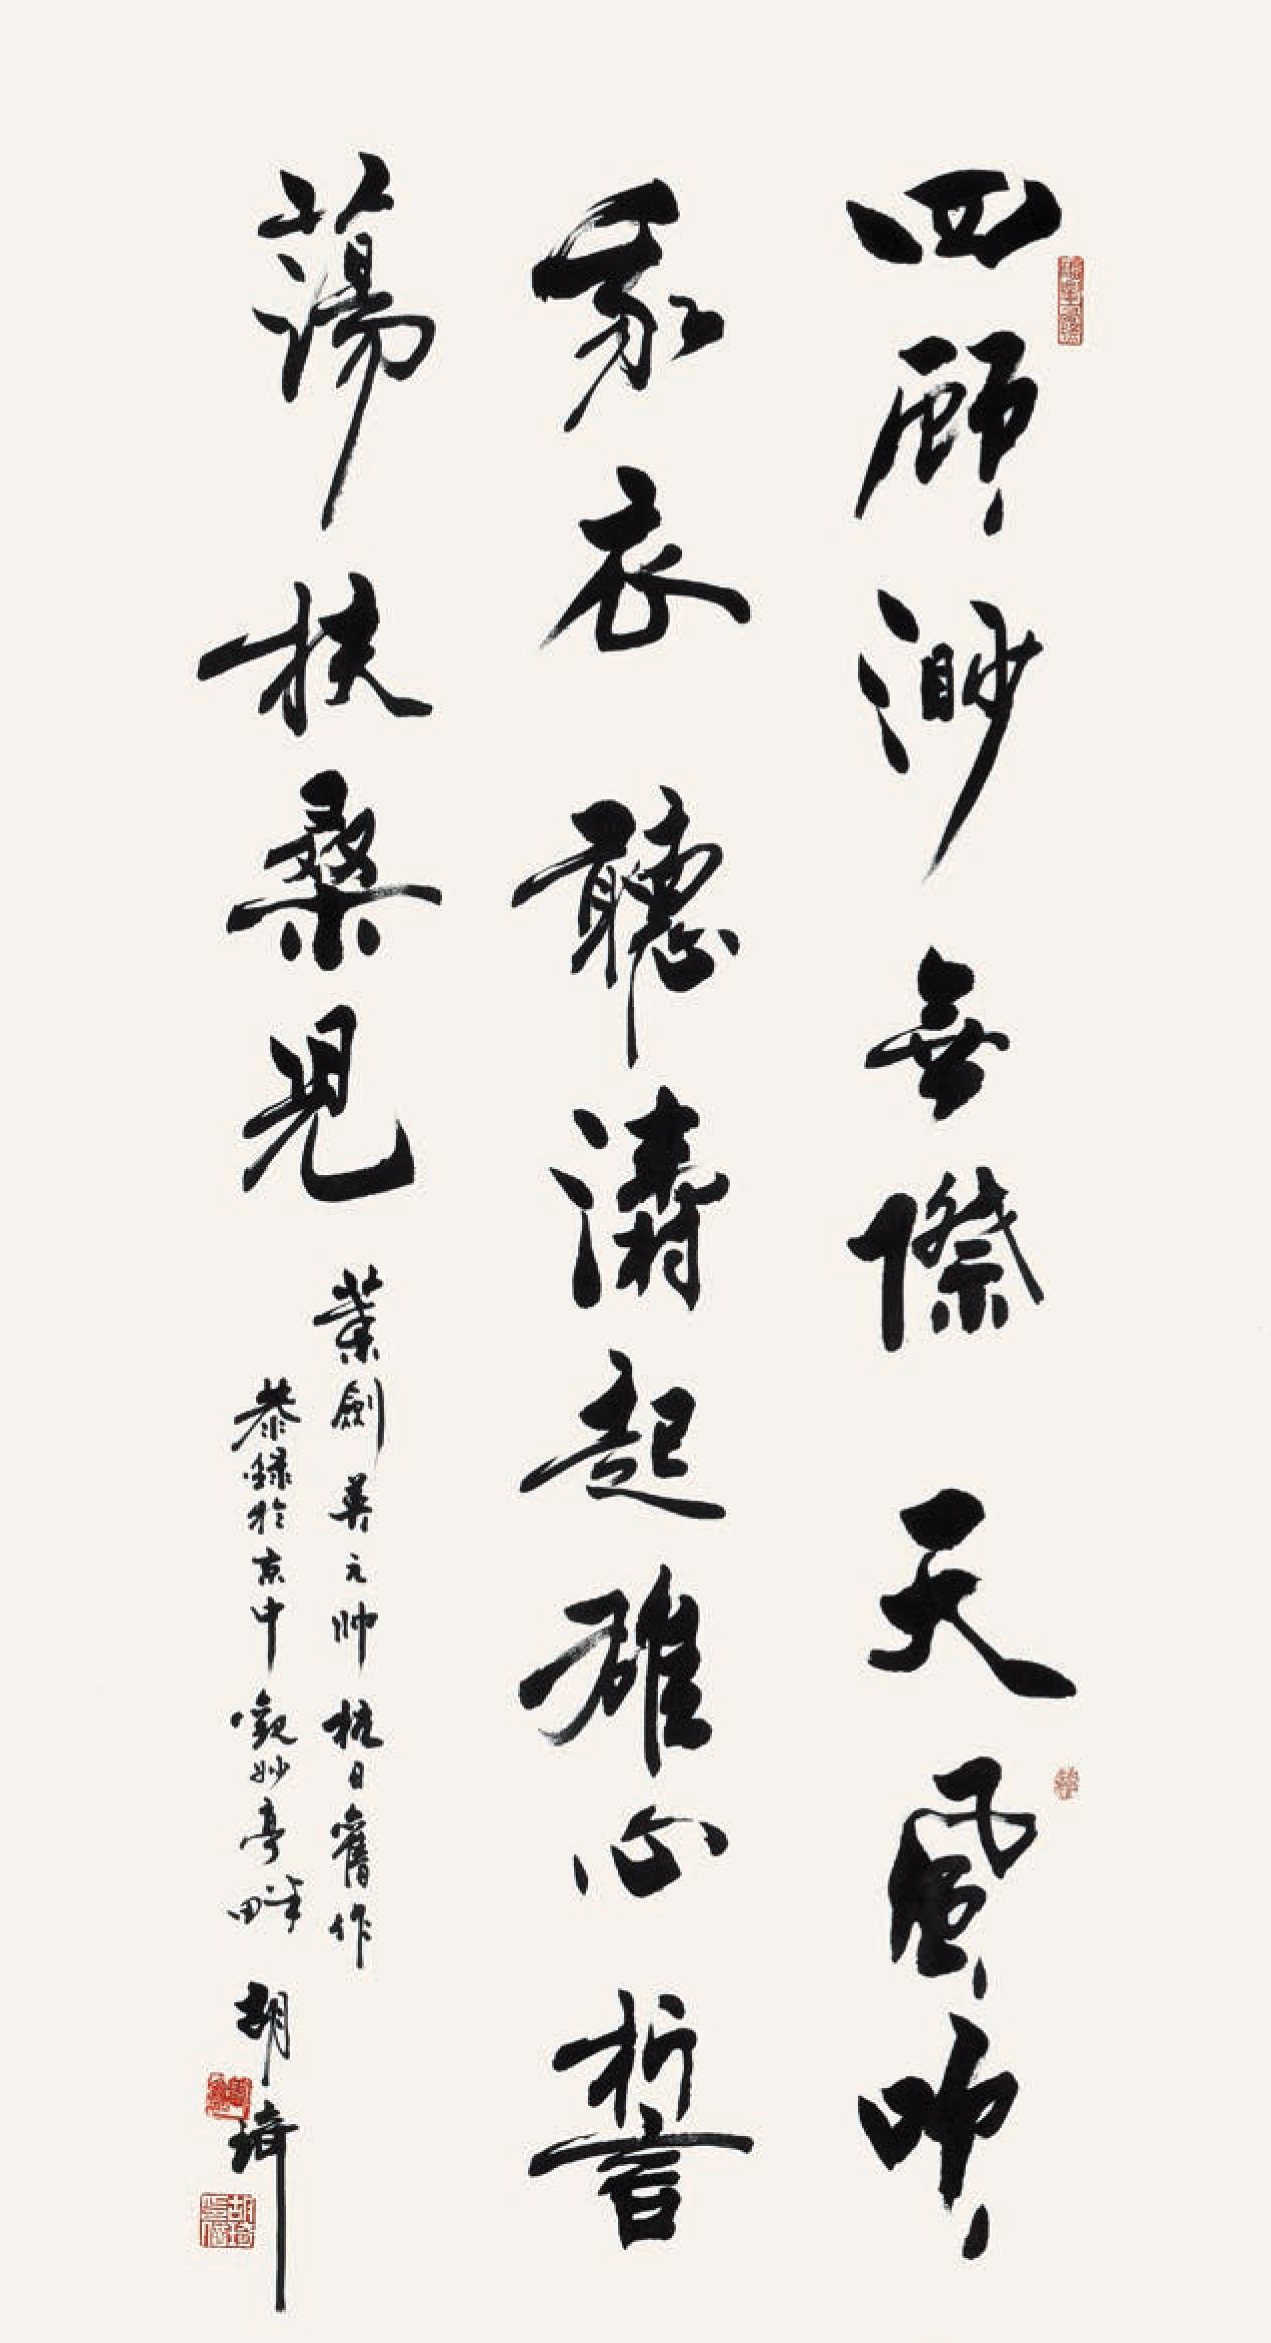 四顧渺無際天風吹
我衣聽濤起雄心誓
蕩扶桑兒
葉劍英元帥抗日舊作
恭錄於京中觀妙亭畔
胡琦